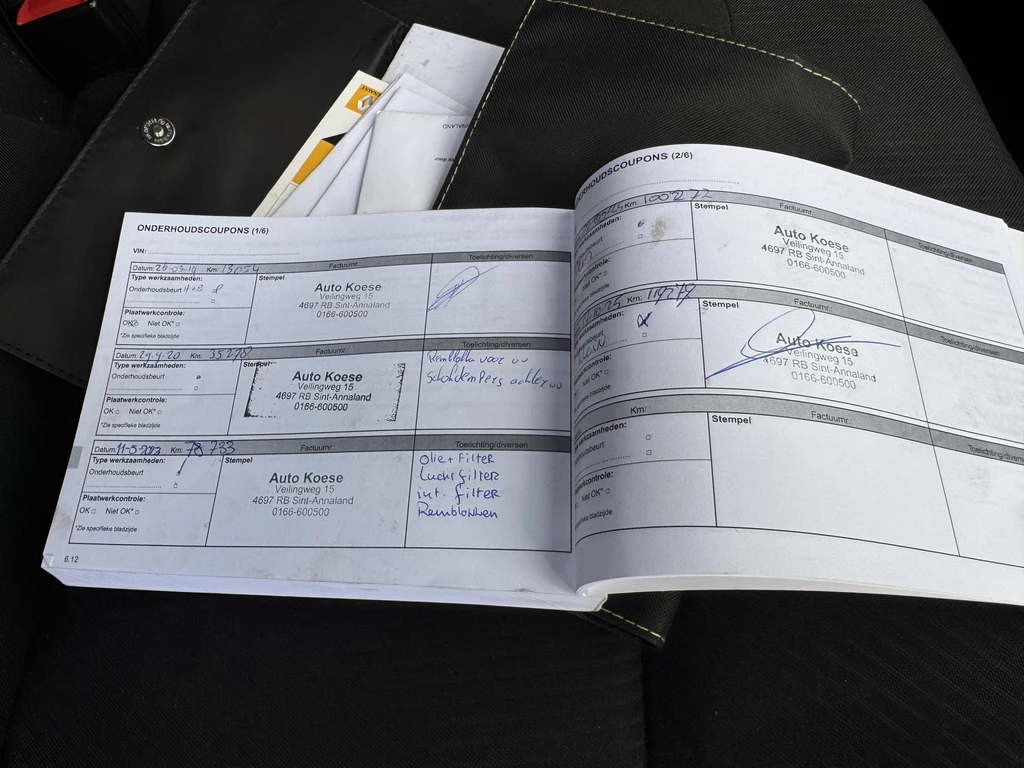 RENAULT
ONDERHOUDSCOUPONS (1/6)
VIN:
Datum: 26-03-19 Km: 13054 Factuurnr.: Toelichting/diversen
Type werkzaamheden:
Onderhoudsbeurt
Stempel
Auto Koese
Veilingweg 15
4697 RB Sint-Annaland
0166-600500
Plaatwerkcontrole:
OK Niet OK*
*Zie specifieke bladzijde
Datum: 29-4-20 Km: 35278 Factuurnr.: Toelichting/diversen
Type werkzaamheden:
Onderhoudsbeurt
Stempel
Auto Koese
Veilingweg 15
4697 RB Sint-Annaland
0166-600500
Remblokken voor
Schokdempers achter
Plaatwerkcontrole:
OK Niet OK*
*Zie specifieke bladzijde
Datum: 11-5-2023 Km: 78733 Factuurnr.: Toelichting/diversen
Type werkzaamheden:
Onderhoudsbeurt
Stempel
Auto Koese
Veilingweg 15
4697 RB Sint-Annaland
0166-600500
Olie + Filter
Luchtfilter
int. filter
Remblokken
Plaatwerkcontrole:
OK Niet OK*
*Zie specifieke bladzijde
6.12
RHOUDSCOUPONS (2/6)
Km: 100272 Factuurnr.: Toelichting/diversen
erkzaamheden:
Stempel
Auto Koese
Veilingweg 15
4697 RB Sint-Annaland
0166-600500
controle:
Niet OK*
bladzijde
Km: 119279 Factuurnr.: Toelichting/diversen
kzaamheden:
Stempel
Auto Koese
Veilingweg 15
4697 RB Sint-Annaland
0166-600500
controle:
Niet OK*
bladzijde
Km: Factuurnr.: Toelichting/diversen
erkzaamheden:
Stempel
erkcontrole:
Niet OK*
specifieke bladzijde